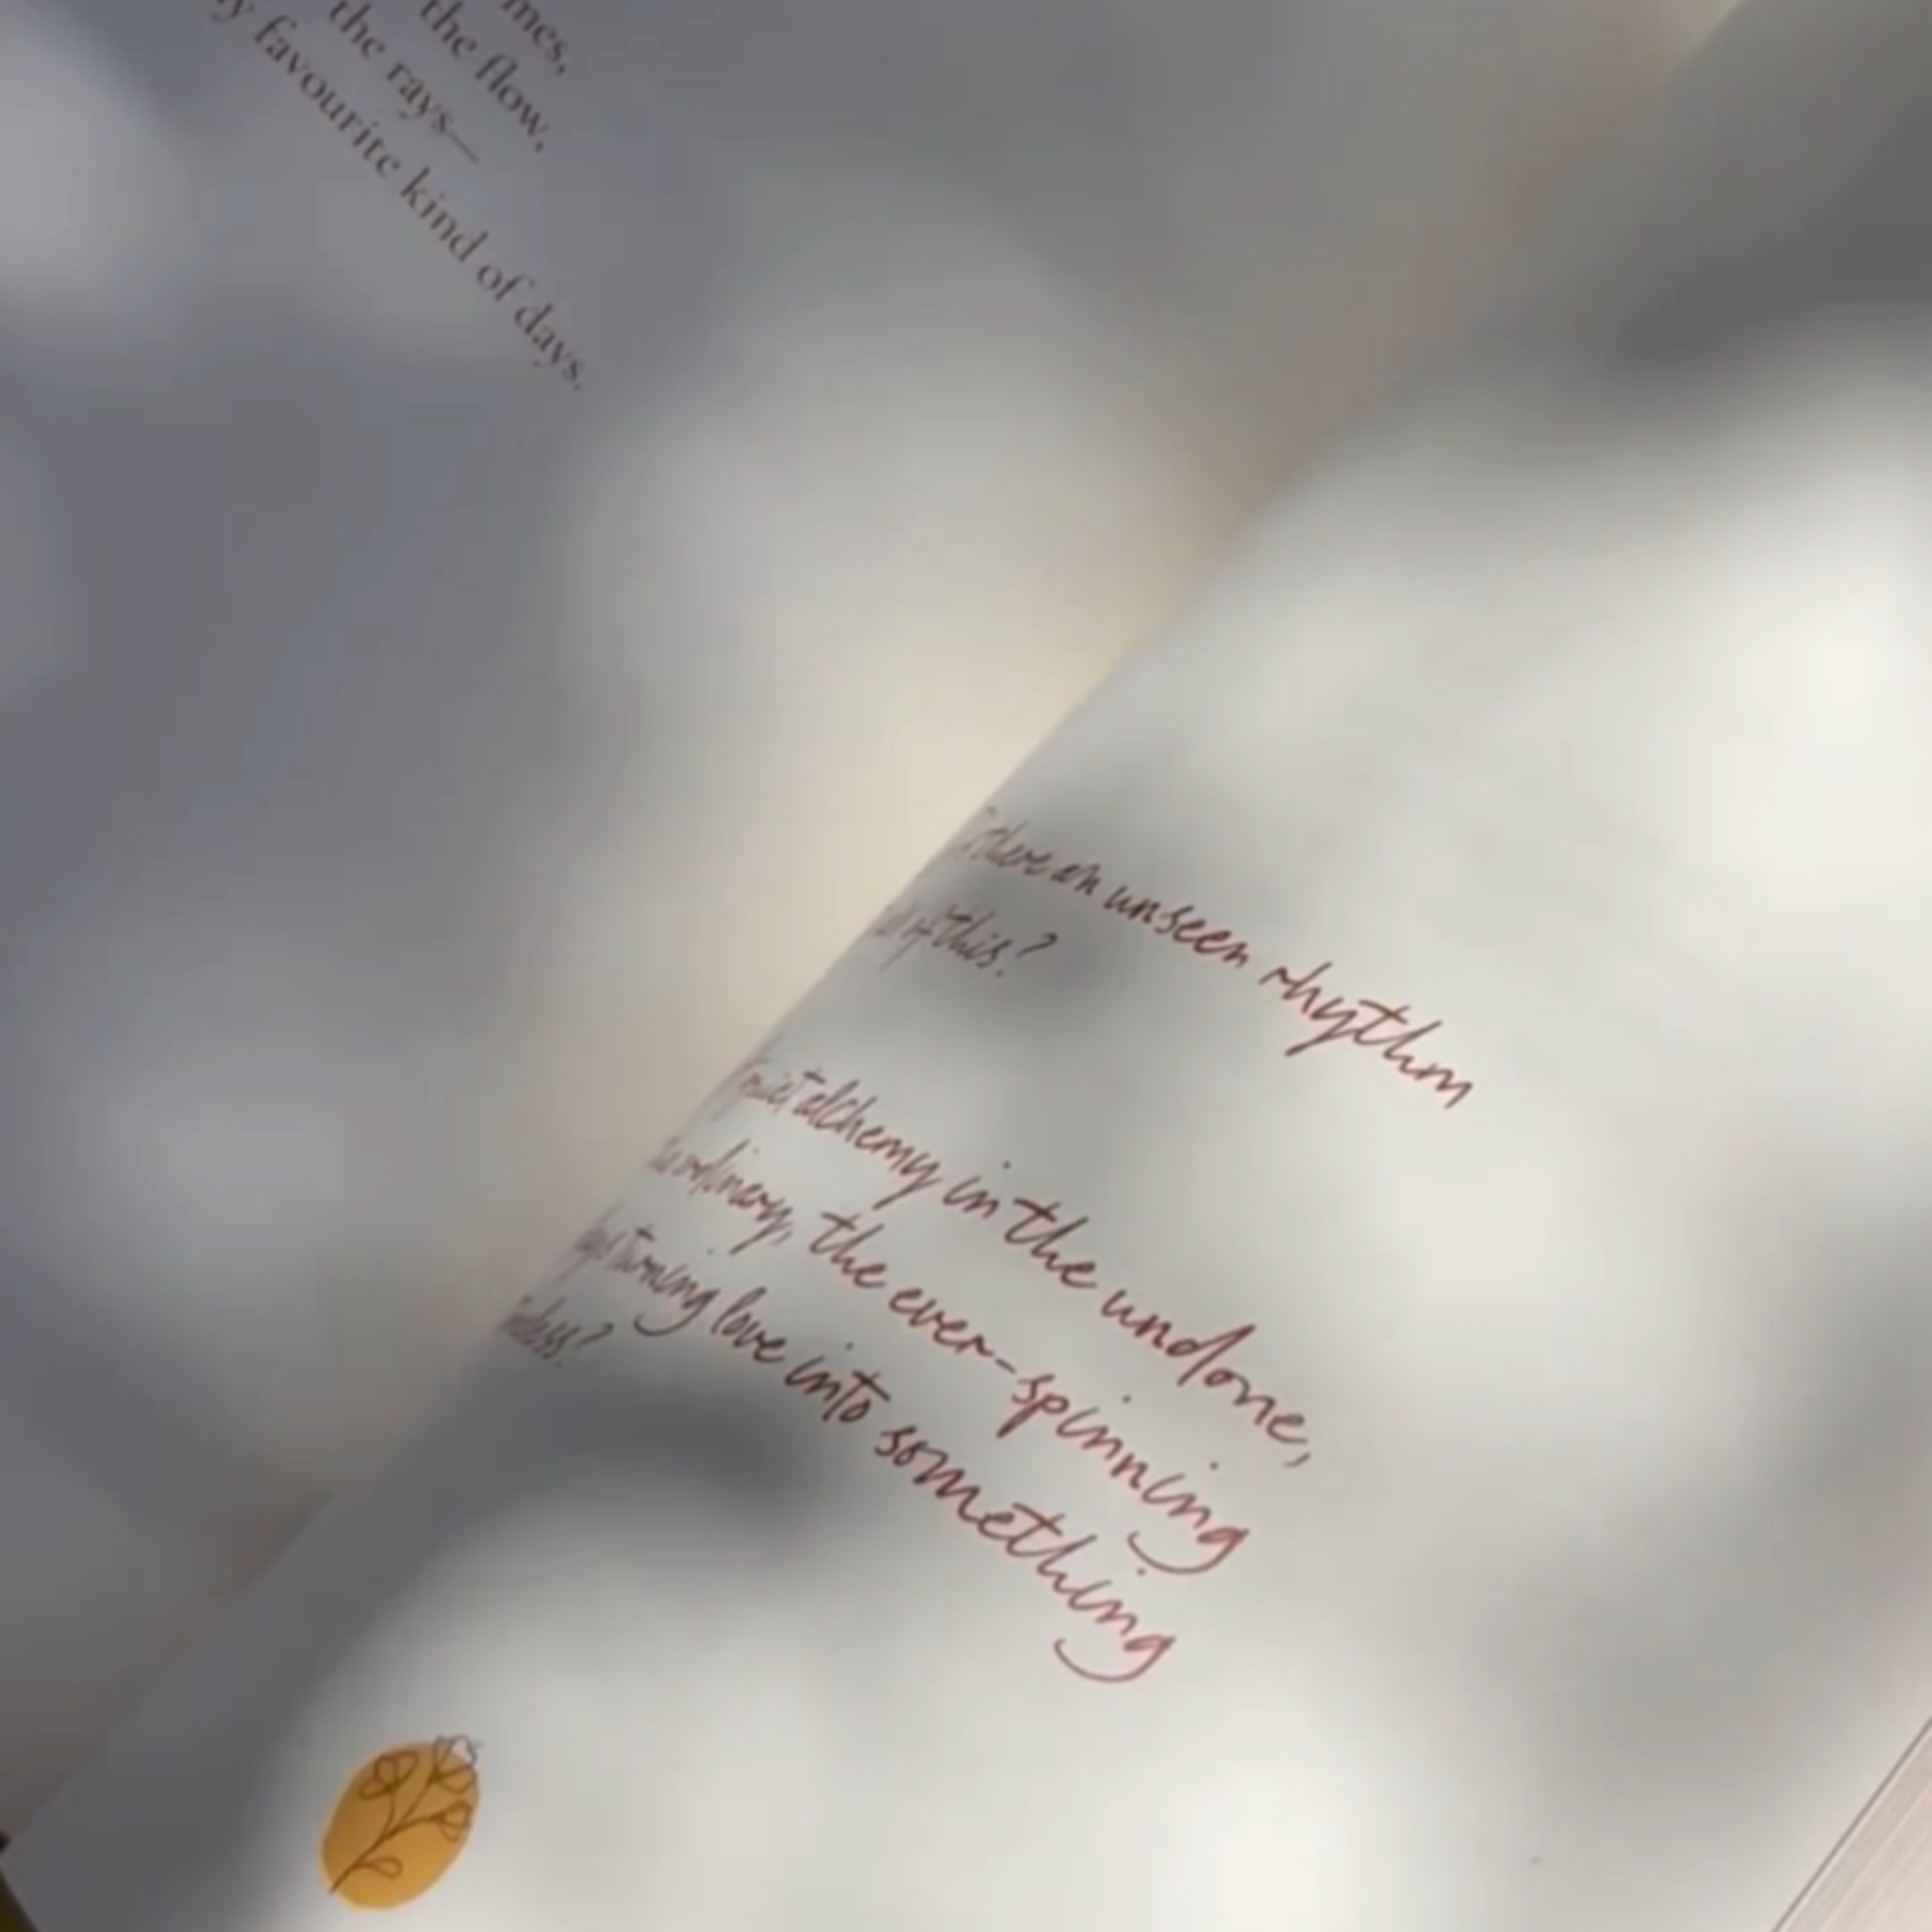 mes,
the flow,
the rays—
y favourite kind of days.
there an unseen rhythm
of this?
quiet alchemy in the undone,
ordinary, the ever-spinning
turning love into something